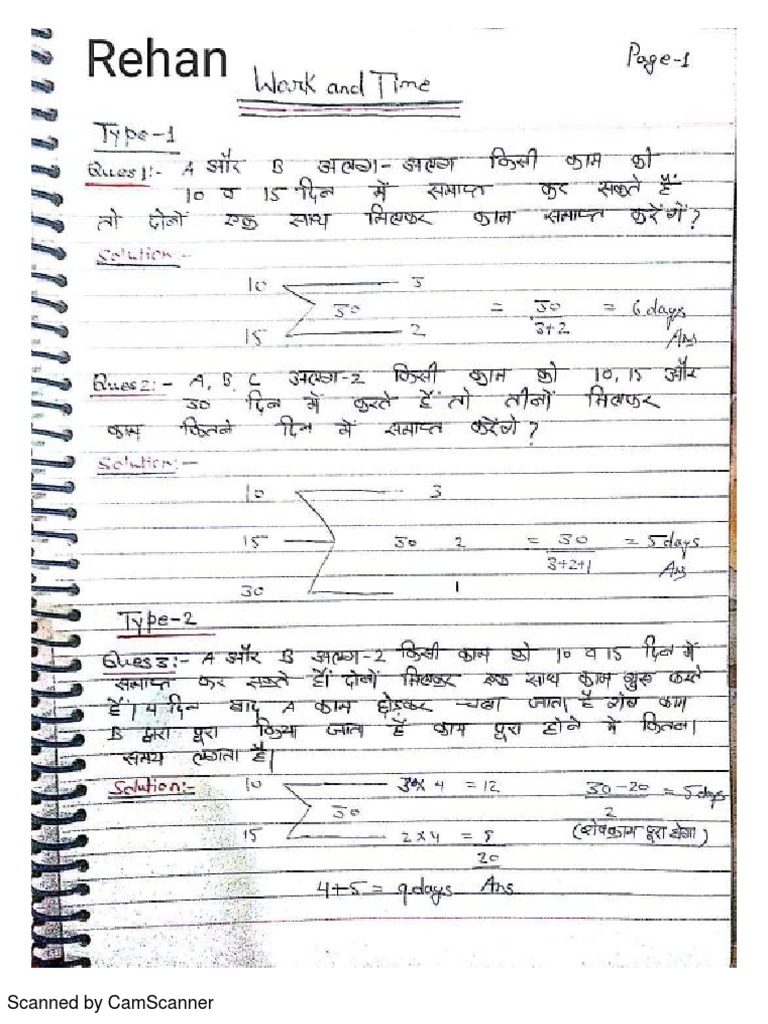 Rehan
Page-1
Work and Time
Type-1
Ques 1:- A और B अलग-अलग किसी काम को
10 व 15 दिन में समाप्त कर सकते हैं
तो दोनों एक साथ मिलकर काम समाप्त करेंगें?
Solution:-
10 3
30 = 30/3+2 = 6 days
15 2 Ans
Ques 2:- A, B, C अलग-2 किसी काम को 10, 15 और
30 दिन में करते हैं तो तीनों मिलकर
काम कितने दिन में समाप्त करेंगे?
Solution:-
10 3
15 30 2 = 30/3+2+1 = 5 days
30 1 Ans
Type-2
Ques 3:- A और B अलग-2 किसी काम को 10 व 15 दिन में
समाप्त कर सकते हैं। दोनों मिलकर एक साथ काम शुरू करते
हैं। 4 दिन बाद A काम छोड़कर चला जाता है शेष काम
B द्वारा पूरा किया जाता है काम पूरा होने में कितना
समय लगता है।
Solution:- 10 3 x 4 = 12 30-20/2 = 5 days
30
15 2 x 4 = 8 (शेष काम पूरा होगा)
20
4+5 = 9 days Ans
Scanned by CamScanner